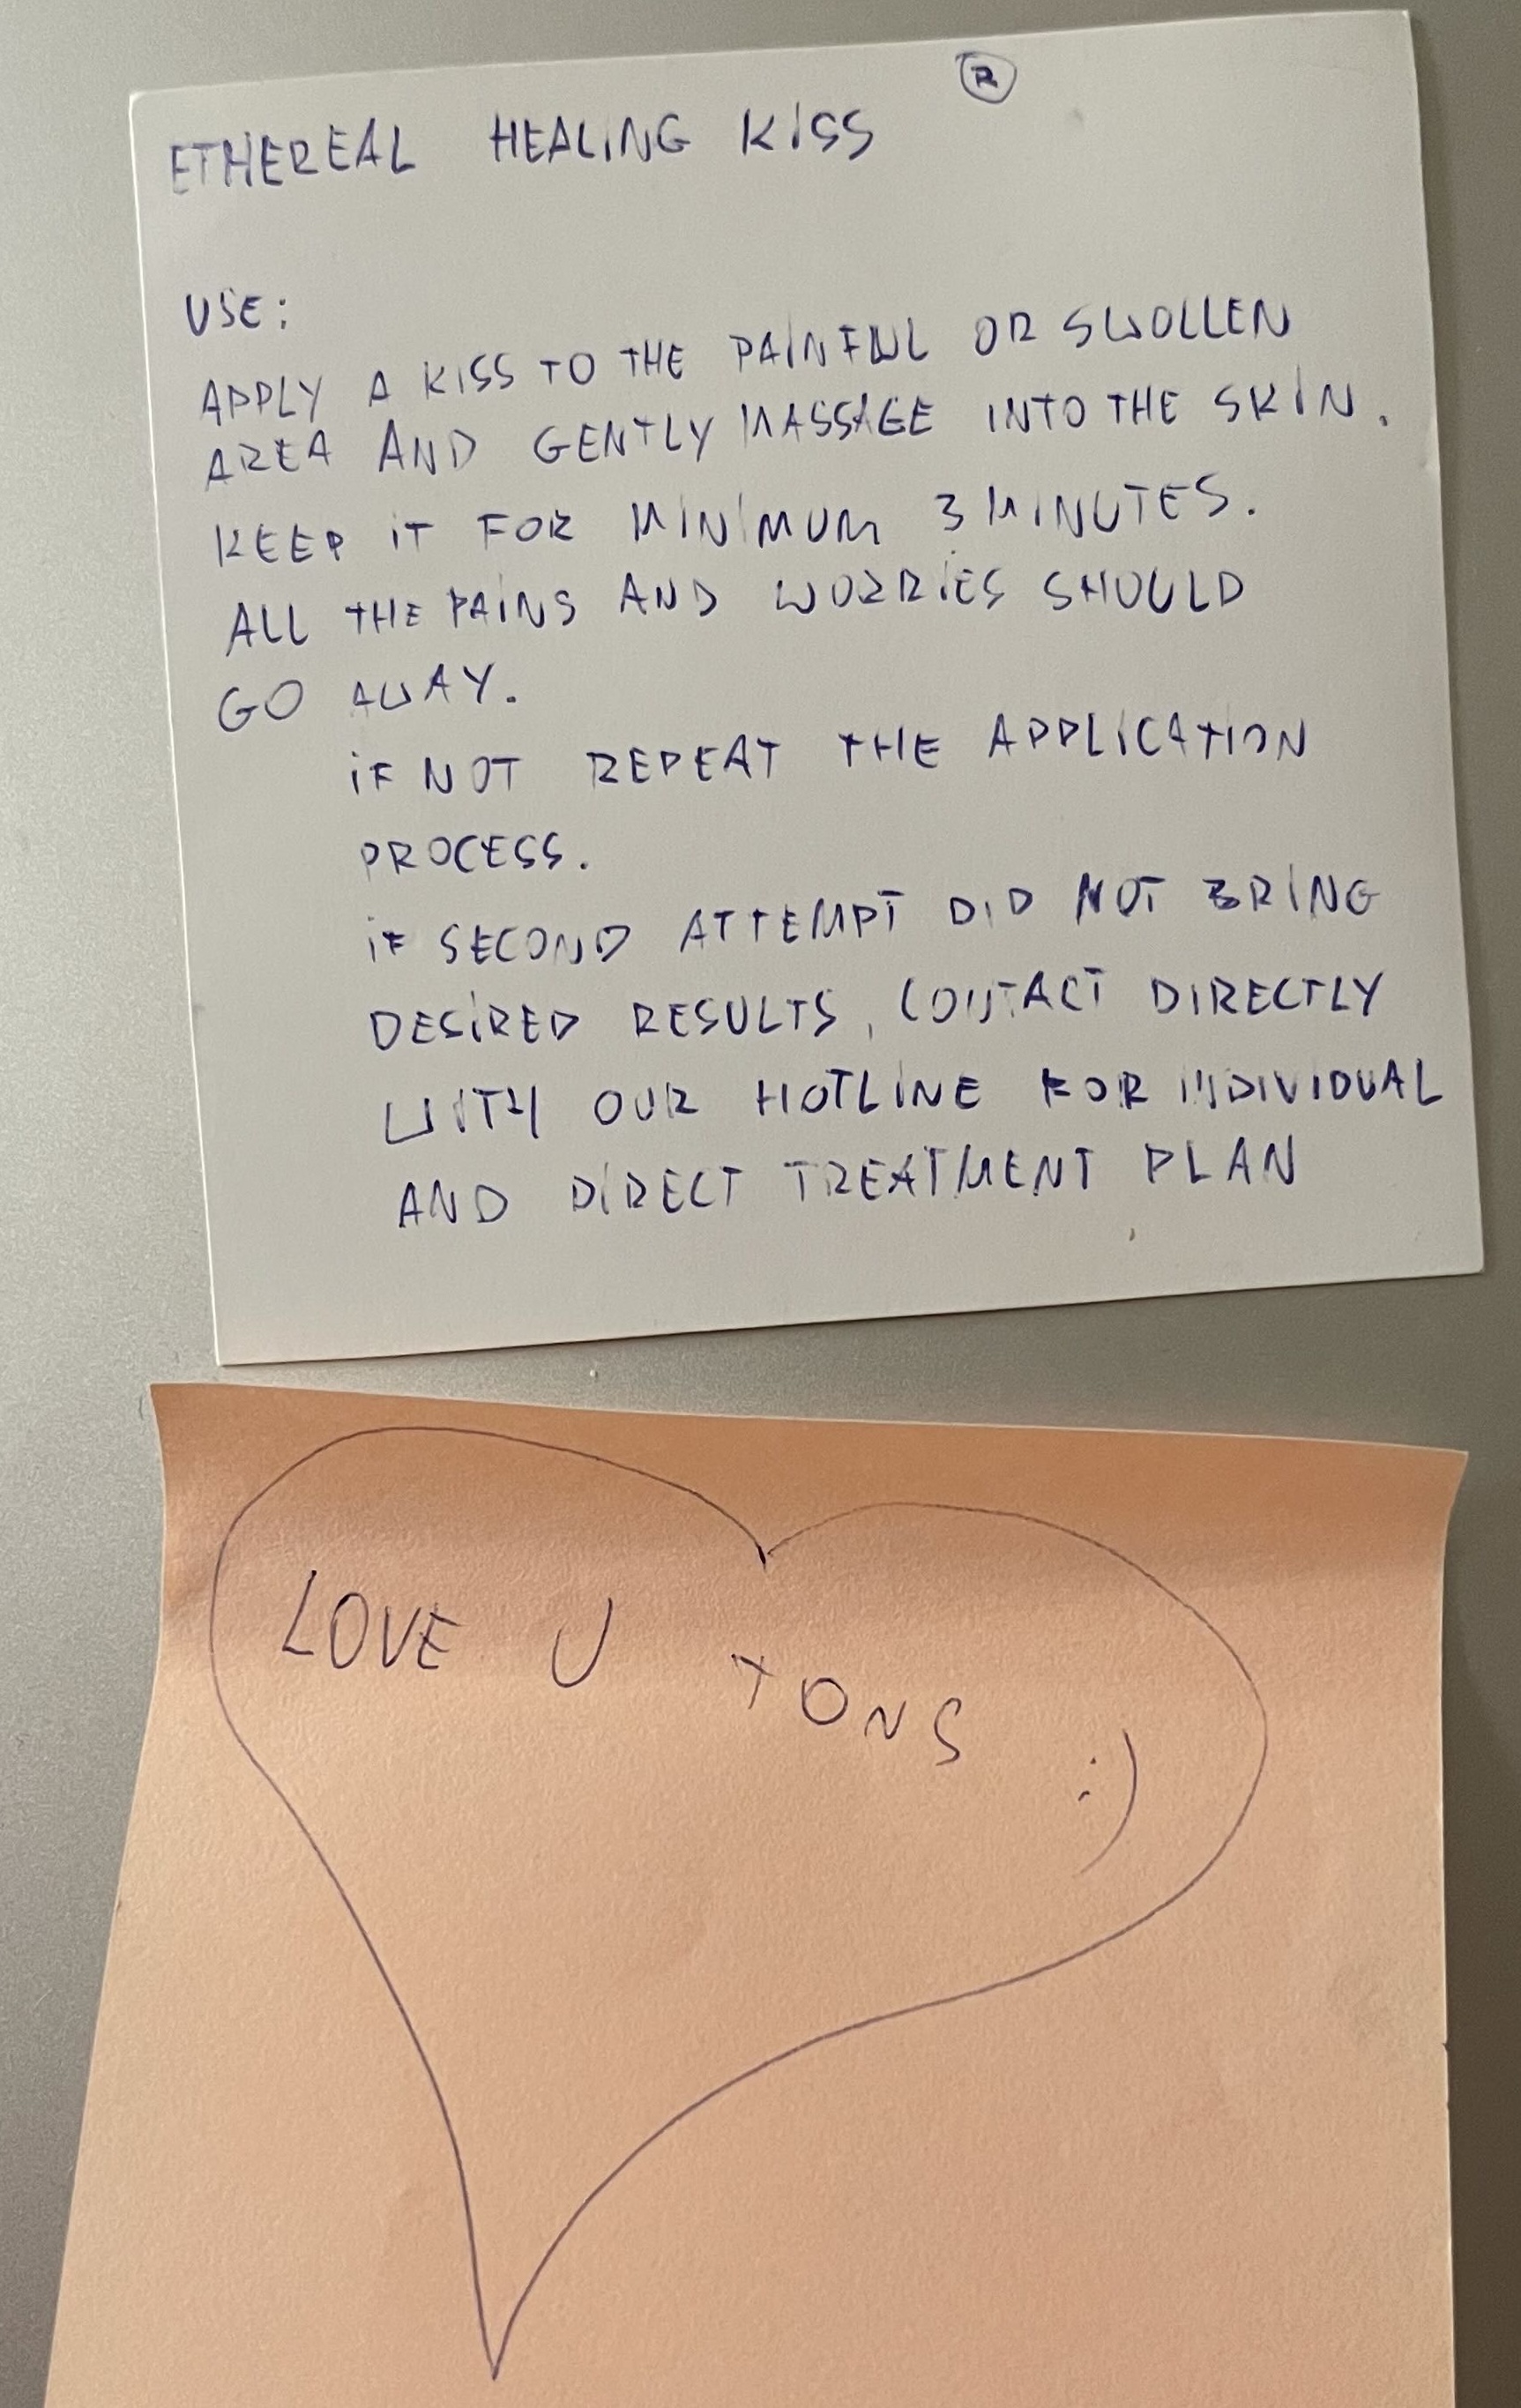 ETHEREAL HEALING KISS ®
USE:
APPLY A KISS TO THE PAINFUL OR SWOLLEN
AREA AND GENTLY MASSAGE INTO THE SKIN.
KEEP IT FOR MINIMUM 3 MINUTES.
ALL THE PAINS AND WORRIES SHOULD
GO AWAY.
IF NOT REPEAT THE APPLICATION
PROCESS.
IF SECOND ATTEMPT DID NOT BRING
DESIRED RESULTS, CONTACT DIRECTLY
WITH OUR HOTLINE FOR INDIVIDUAL
AND DIRECT TREATMENT PLAN
LOVE U TONS :)